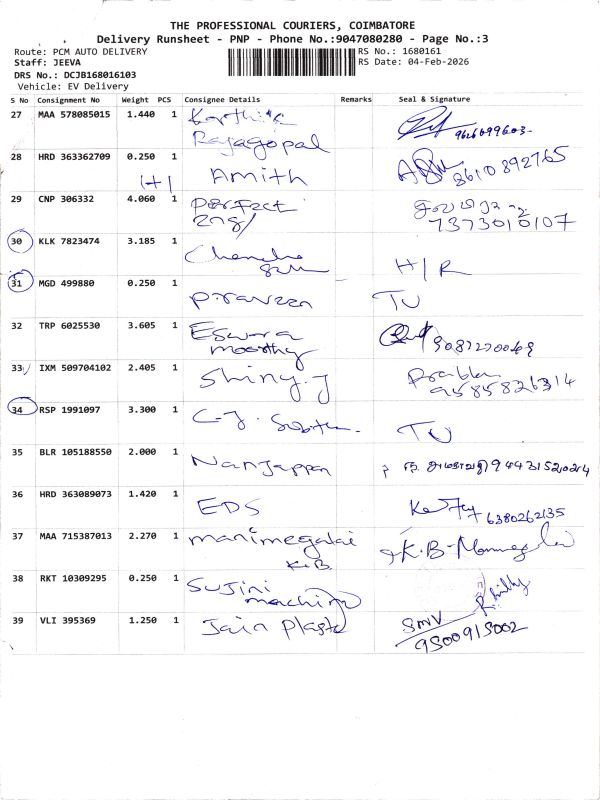 THE PROFESSIONAL COURIERS, COIMBATORE
Delivery Runsheet - PNP - Phone No.:9047080280 - Page No.:3
Route: PCM AUTO DELIVERY RS No.: 1680161
Staff: JEEVA RS Date: 04-Feb-2026
DRS No.: DCJB168016103
Vehicle: EV Delivery
S No Consignment No Weight PCS Consignee Details Remarks Seal & Signature
27 MAA 578085015 1.440 1 Karthik
Rajagopal 9626099603
28 HRD 363362709 0.250 1 Amith 8610892765
H1
29 CNP 306332 4.060 1 Perfect
Eng/ 7373010107
30 KLK 7823474 3.185 1 Chandra
H/R
31 MGD 499880 0.250 1 Praveen TU
32 TRP 6025530 3.605 1 Eswara
moorthy 9087270049
33 IXM 509704102 2.405 1 Shiny.J Prabhu
9585826314
34 RSP 1991097 3.300 1 C.J. TU
35 BLR 105188550 2.000 1 Nanjappan 9443152024
36 HRD 363089073 1.420 1 EDS 6380262135
37 MAA 715387013 2.270 1 manimegalai K.B.
K.B.
38 RKT 10309295 0.250 1 Sujini
machine
39 VLI 395369 1.250 1 Jain Plasto SMV
9500915002